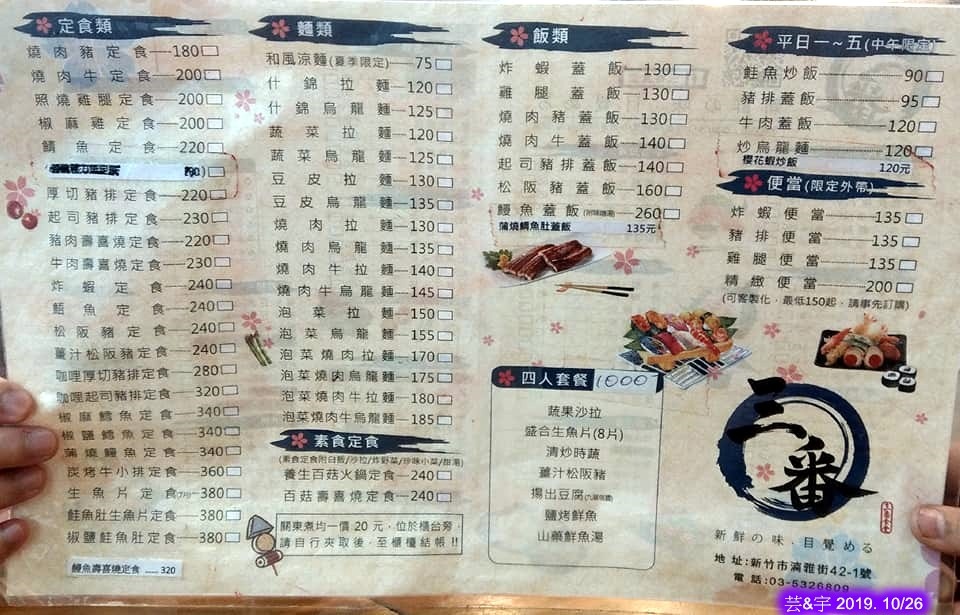 定食類
燒肉豬定食 180
燒肉牛定食 200
照燒雞腿定食 200
椒麻雞定食 200
鯖魚定食 220
厚切豬排定食 220
起司豬排定食 230
豬肉壽喜燒定食 220
牛肉壽喜燒定食 230
炸蝦定食 240
魚定食 240
松阪豬定食 240
薑汁松阪豬定食 240
咖哩厚切豬排定食 280
咖哩起司豬排定食 320
椒麻鱈魚定食 340
椒鹽鱈魚定食 340
蒲燒鰻魚定食 340
炭烤牛小排定食 360
生魚片定食 380
鮭魚肚生魚片定食 380
椒鹽鮭魚肚定食 380
鰻魚壽喜燒定食 ..... 320
麵類
和風涼麵(夏季限定) 75
什錦拉麵 120
什錦烏龍麵 125
蔬菜拉麵 120
蔬菜烏龍麵 125
豆皮拉麵 130
豆皮烏龍麵 135
燒肉拉麵 130
燒肉烏龍麵 135
燒肉牛拉麵 140
燒肉牛烏龍麵 145
泡菜拉麵 150
泡菜烏龍麵 155
泡菜燒肉拉麵 170
泡菜燒肉烏龍麵 175
泡菜燒肉牛拉麵 180
泡菜燒肉牛烏龍麵 185
素食定食
(素食定食附白飯/沙拉/炸野菜/珍味小菜/甜湯)
養生百菇火鍋定食 240
百菇壽喜燒定食 240
關東煮均一價 20 元，位於櫃台旁，
請自行夾取後，至櫃檯結帳!!
飯類
炸蝦蓋飯 130
雞腿蓋飯 130
燒肉豬蓋飯 130
燒肉牛蓋飯 140
起司豬排蓋飯 140
松阪豬蓋飯 160
鰻魚蓋飯(附味噌湯) 260
蒲燒鯛魚肚蓋飯 135元
四人套餐 1000
蔬果沙拉
盛合生魚片(8片)
清炒時蔬
薑汁松阪豬
揚出豆腐
鹽烤鮮魚
山藥鮮魚湯
平日一~五(中午限定)
鮭魚炒飯 90
豬排蓋飯 95
牛肉蓋飯 120
炒烏龍麵 120
櫻花蝦炒飯 120元
便當(限定外帶)
炸蝦便當 135
豬排便當 135
雞腿便當 135
精緻便當 200
(可客製化，最低150起，請事先訂購)
三番
新鮮の味．目覺める
地址:新竹市湳雅街42-1號
電話:03-5326809
芸&宇 2019. 10/26